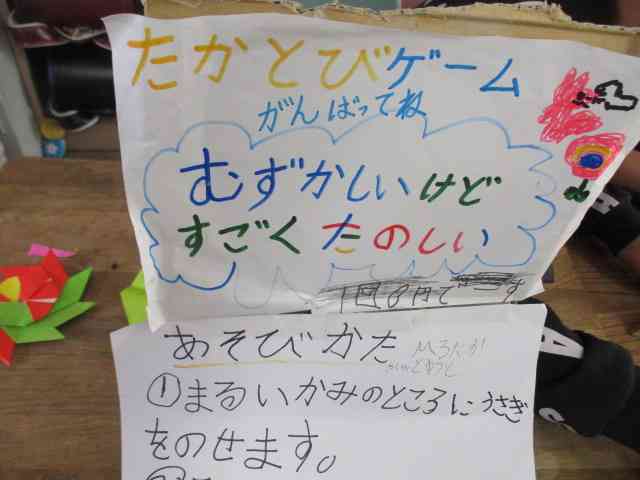 たかとびゲーム
がんばってね
むずかしいけど
すごく たのしい
1回8円で す
あそびかた
①まるいかみのところにうさぎ
をのせます。